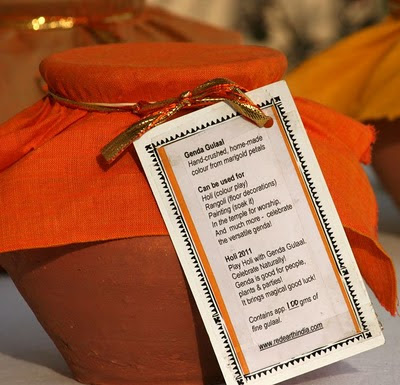 Genda Gulaal
Hand-crushed, home-made
colour from marigold petals
Can be used for
Holi (colour play)
Rangoli (floor decorations)
Painting (soak it)
In the temple for worship,
And much more - celebrate
the versatile genda!
Holi 2011
Play Holi with Genda Gulaal,
Celebrate Naturally!
Genda is good for people,
plants & parties!
It brings magical good luck!
Contains app. 100 gms of
fine gulaal.
www.redearthindia.com